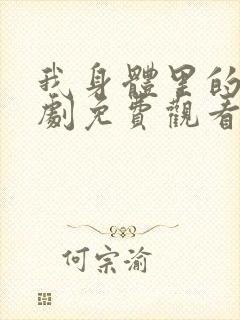 我身體里的
劇免費觀看
何宗渝